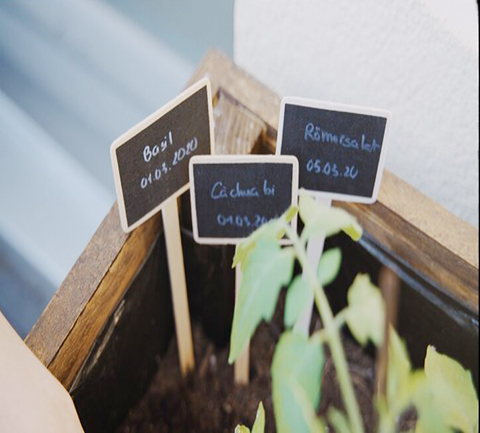 Basil
01.03.2020
Cà chua bi
01.03.2020
Römersalat
05.03.20